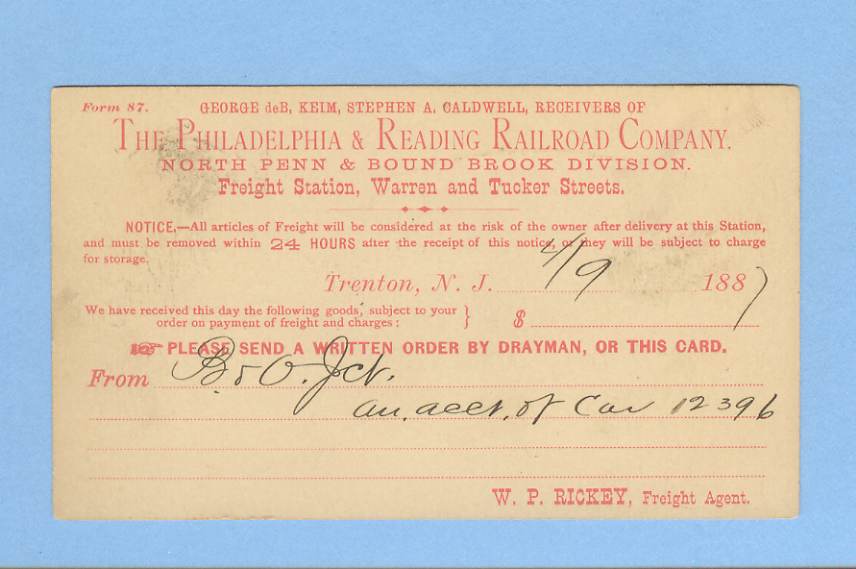 Form 87. GEORGE deB, KEIM, STEPHEN A, CALDWELL, RECEIVERS OF
THE PHILADELPHIA & READING RAILROAD COMPANY.
NORTH PENN & BOUND BROOK DIVISION.
Freight Station, Warren and Tucker Streets.
NOTICE.—All articles of Freight will be considered at the risk of the owner after delivery at this Station,
and must be removed within 24 HOURS after the receipt of this notice, or they will be subject to charge
for storage.
Trenton, N. J. 4/9 1887
We have received this day the following goods, subject to your
order on payment of freight and charges: } $
☞ PLEASE SEND A WRITTEN ORDER BY DRAYMAN, OR THIS CARD.
From B & O. Jct.
an. acct. of Car 12396
W. P. RICKEY, Freight Agent.